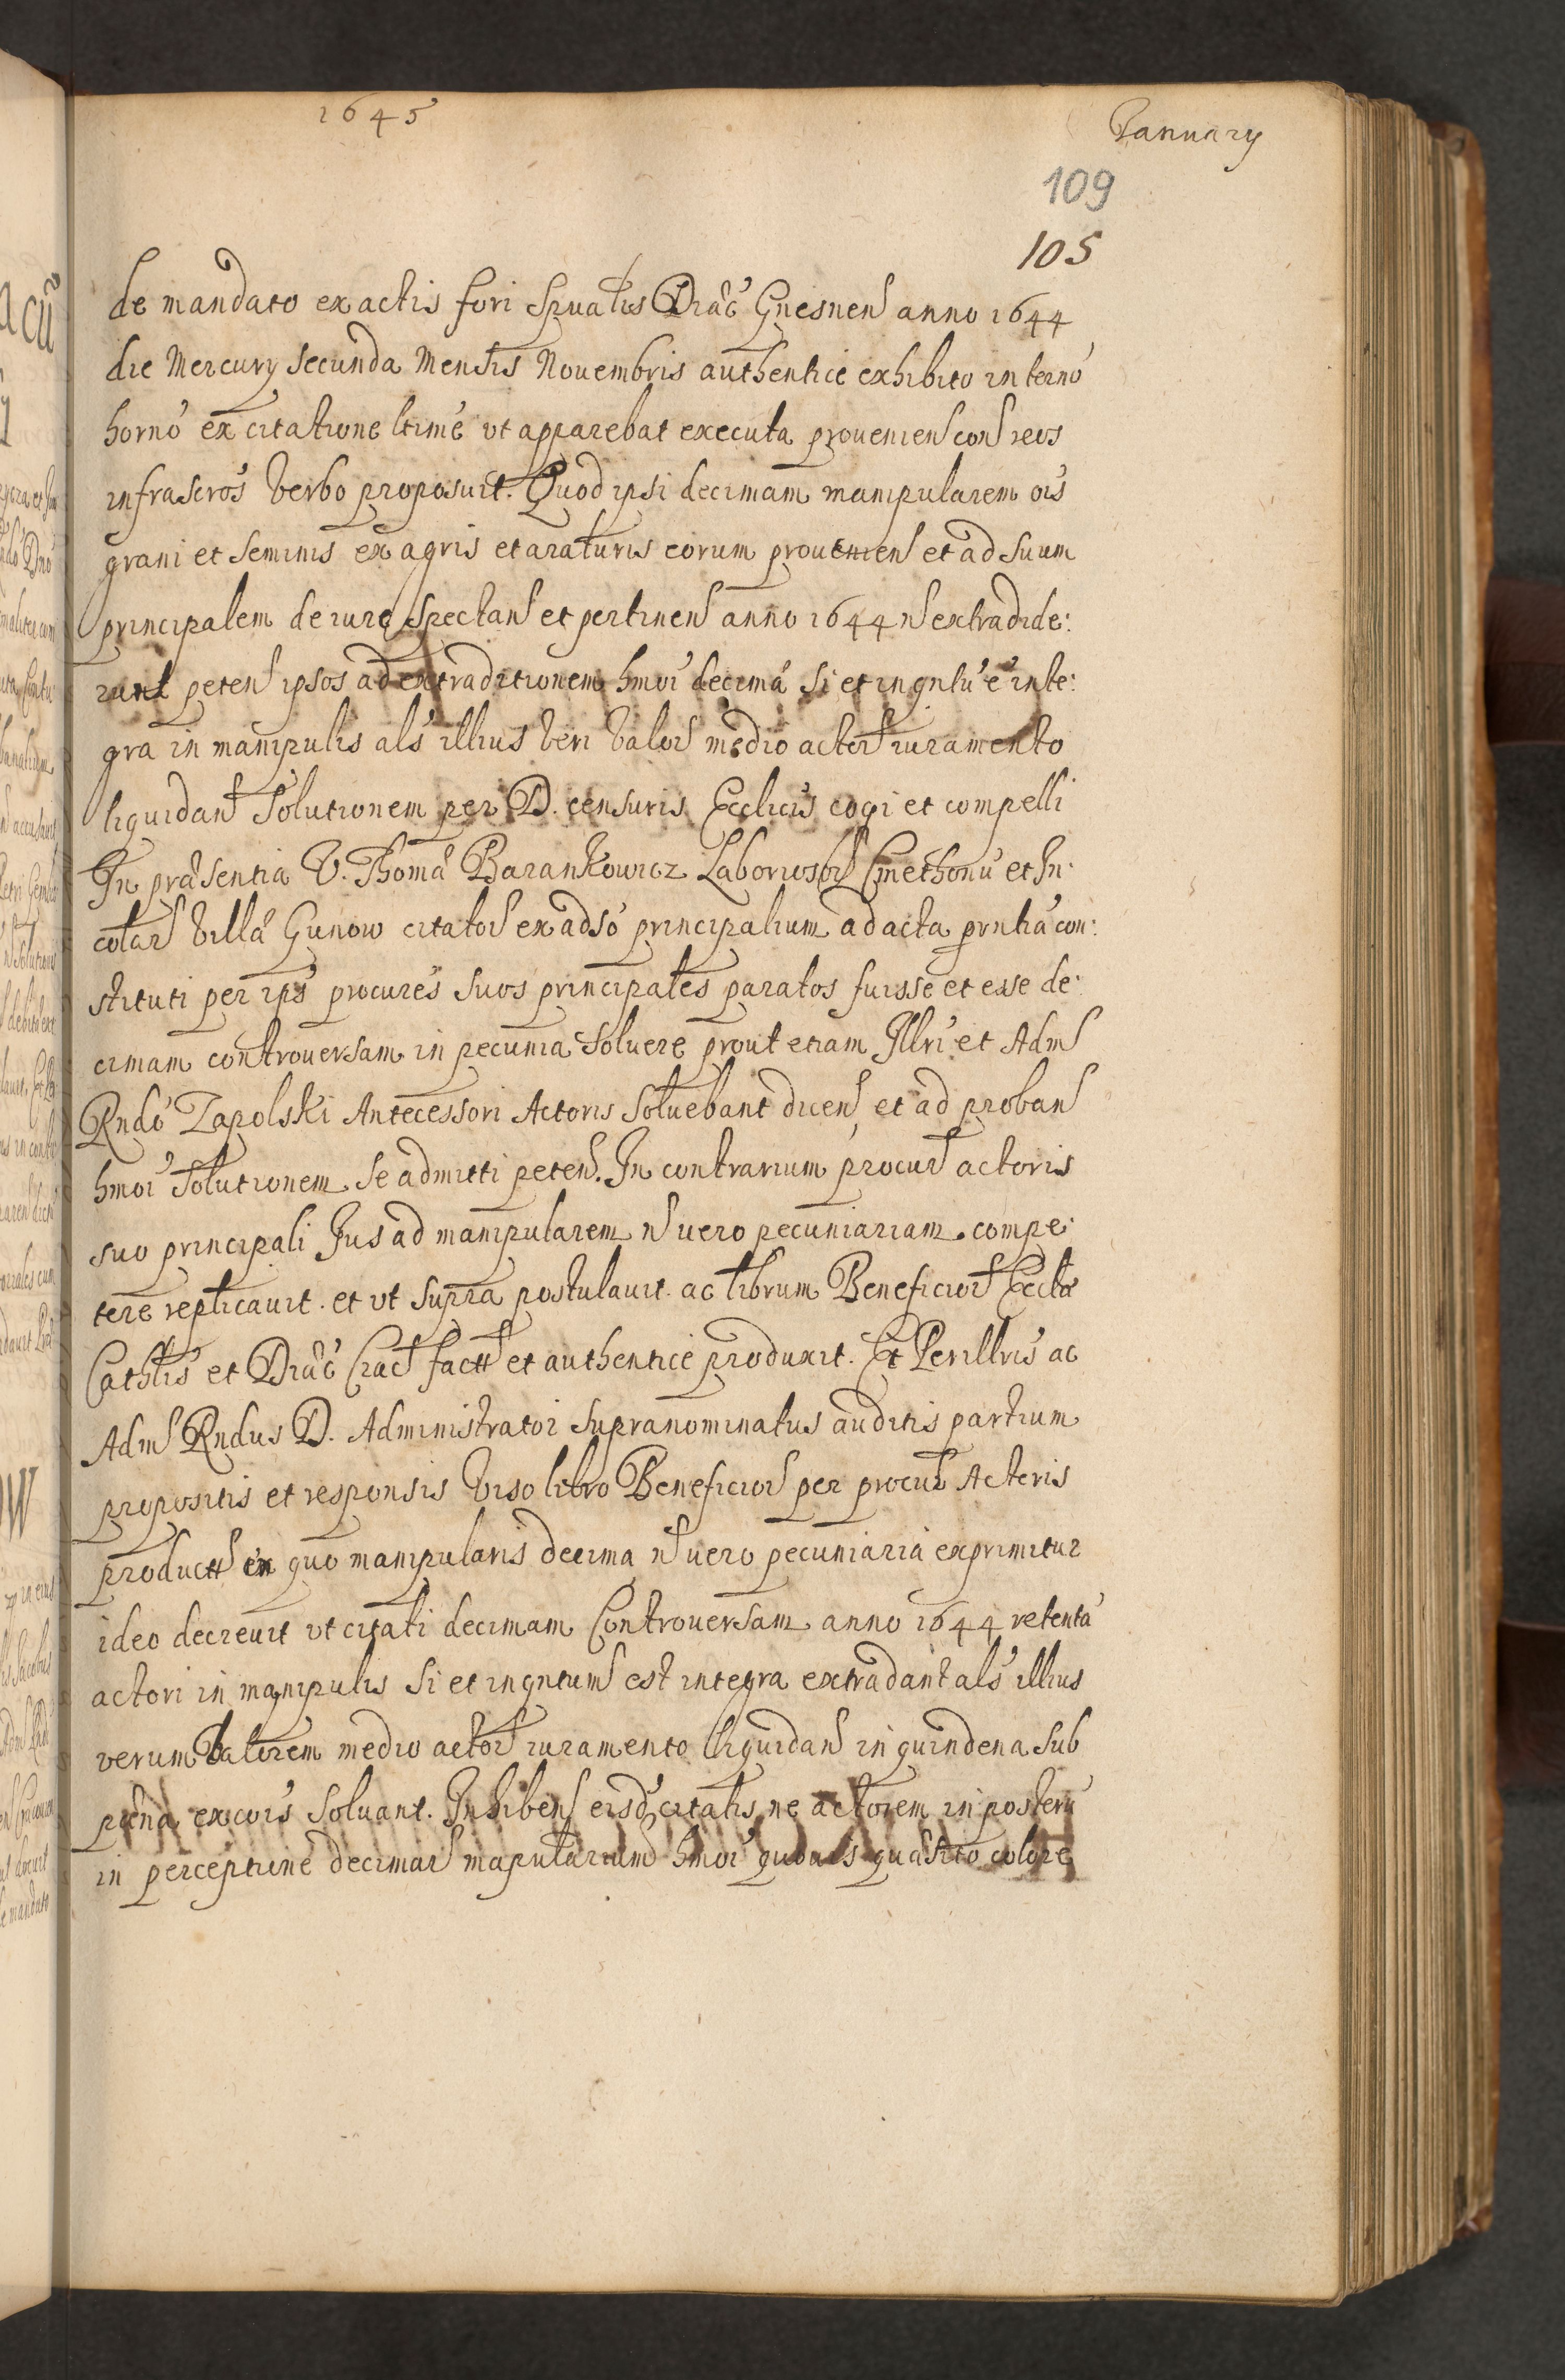 1645
January
109
105
de mandato ex actis fori Spualis Diaec Gnesnen anno 1644
die Mercury Secunda Mensis Nouembris authentice exhibito in terno
horno ex citatione ltime vt apparebat executa prouenien con reos
infrascros verbo proposuit. Quod ipsi decimam manipularem ois
grani et Seminis ex agris et araturis eorum prouenien et ad suum
principalem de iure Spectan et pertinen anno 1644 n extradide:
runt peten ipsos ad extraditionem hmoi decimae Si et inqntu e inte:
gra in manipulis als illius veri valor medio actor iuramento
liquidan Solutionem per D. censuris Ecclicis cogi et compelli
In praesentia V. Thomae Barankowicz Laboriosor Cmethonu et In:
colar villae Gunow citator ex adso principalium ad acta prntia con:
stituti per ips procures suos principales paratos fuisse et esse de:
cimam controuersam in pecunia Soluere prout etiam Illri et Adm
Rndo Zapolski Antecessori Actoris Soluebant dicen et ad proban
hmoi Solutionem Se admitti peten. In contrarium procur actoris
suo principali Jus ad manipularem n uero pecuniariam compe:
tere replicauit. et vt supra postulauit. ac librum Beneficior Eccle
Cathlis et Diaec Crac fact et authentice produxit. Et Perillris ac
Adm Rndus D. Administrator Supranominatus auditis partium
propositis et responsis viso libro Beneficior per procur Actoris
product ex quo manipularis decima n uero pecuniaria exprimitur
ideo decreuit vt citati decimam Controuersam anno 1644 retenta
actori in manipulis Si et inqntum est integra extradant als illius
verum valorem medio actor iuramento liquidan in quindena sub
paena excois Soluant. Inhiben eisd citatis ne actorem in posteru
in perceptione decimar mapularium hmoi quouis quaesito colore